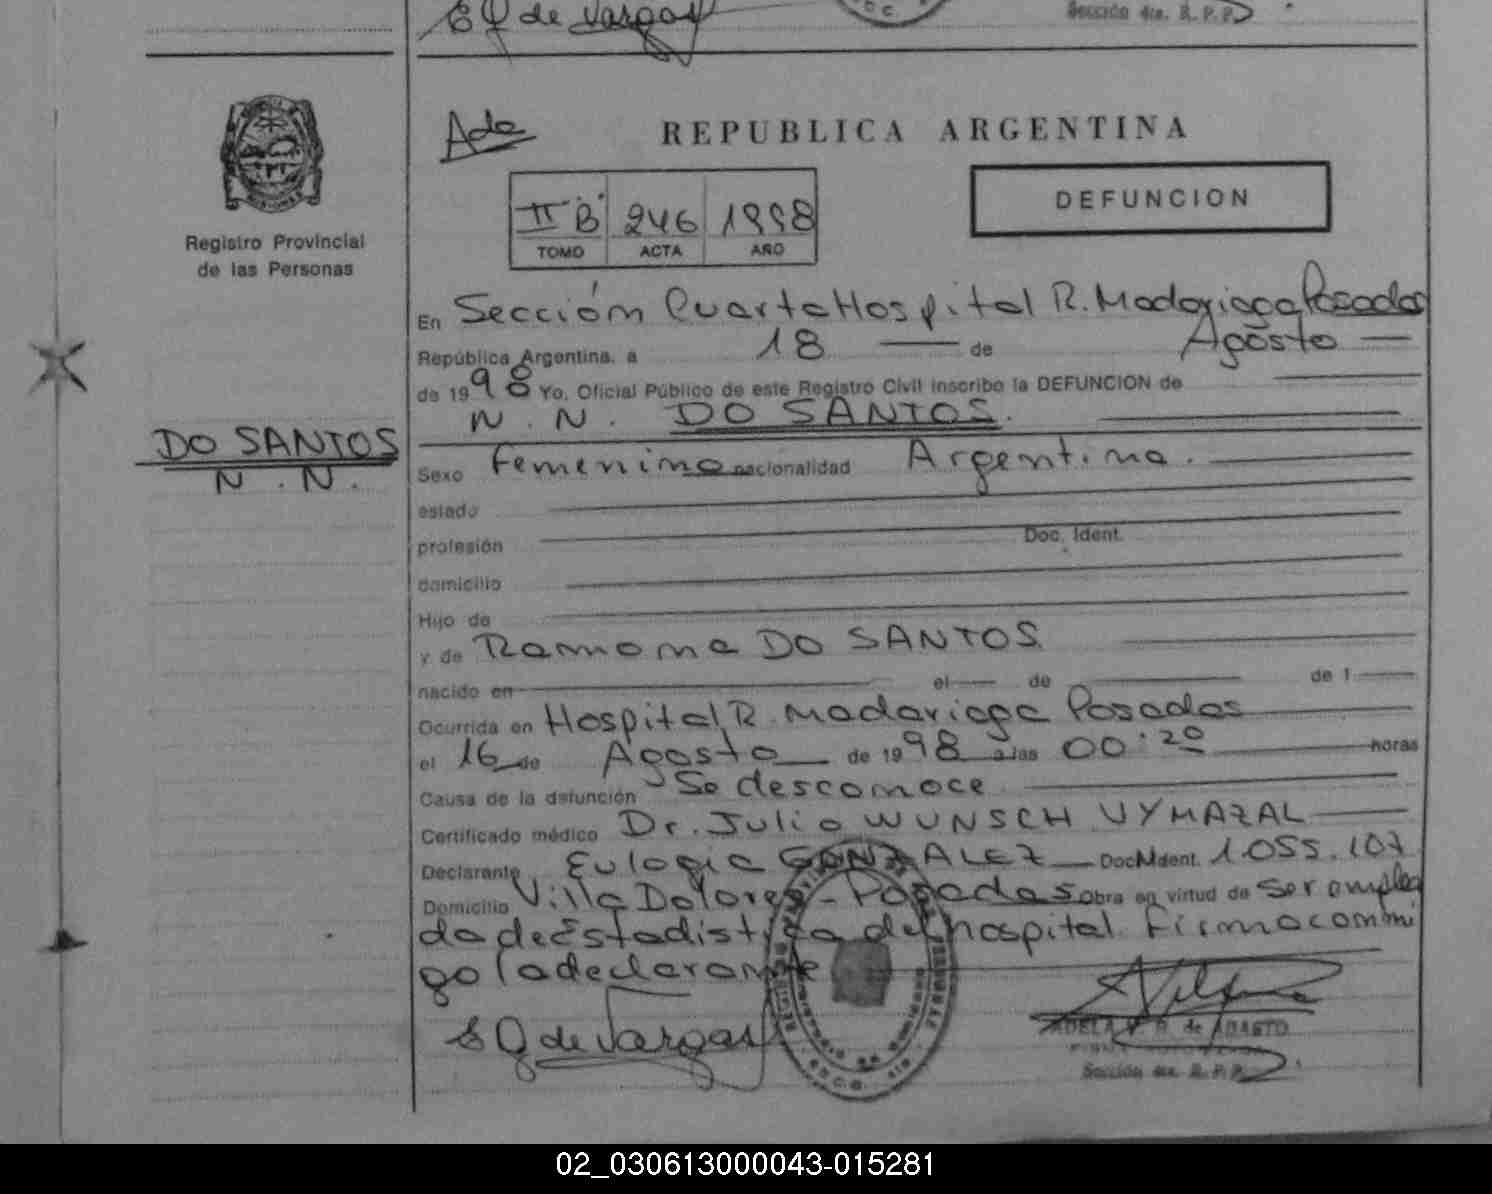 E Q de Vargas
Sección 4ta. R. P. P.
Registro Provincial
de las Personas
DO SANTOS
N . N.
Ada
REPUBLICA ARGENTINA
II "B" 246 1998
TOMO ACTA AÑO
DEFUNCION
En Sección Cuarta Hospital R. Madariaga Posadas
República Argentina, a 18 de Agosto
de 1998 Yo, Oficial Público de este Registro Civil inscribo la DEFUNCION de
N . N. DO SANTOS.
Sexo femenino nacionalidad Argentina.
estado
profesión Doc. Ident.
domicilio
Hijo de
y de Ramona DO SANTOS
nacido en el de de 1
Ocurrida en Hospital R. Madariaga Posadas
el 16 de Agosto de 1998 a las 00:20 horas
Causa de la defunción Se desconoce
Certificado médico Dr. Julio WUNSCH VYMAZAL
Declarante Eulogia GONZALEZ Doc. Ident. 1.055.107
Domicilio Villa Dolores - Posadas obra en virtud de ser emplea
da de Estadistica del hospital. Firma conmi
go la declarante
E Q de Vargas
ADELA de ABASTO
Sección 4ta. R. P. P.
02_030613000043-015281